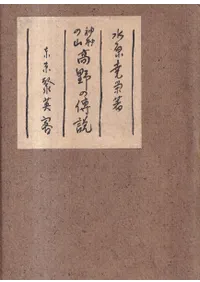 水原堯榮著
神秘の山
高野の傳説
東京聚英閣